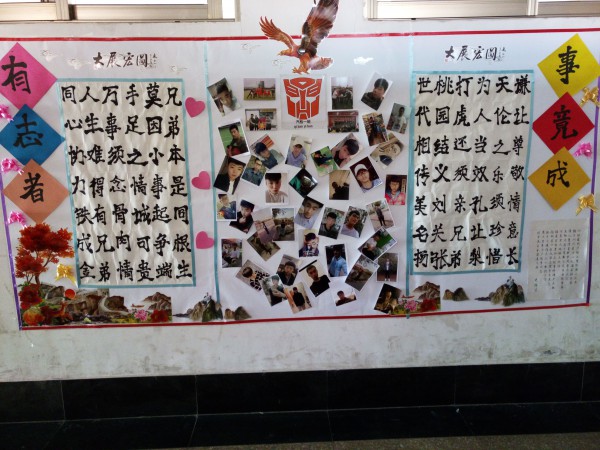 有志者
大展宏圖
兄弟本是同根生
莫因小事起争端
手足之情城可贵
万事须念骨肉情
人生难得有兄弟
同心协力铁成金
大展宏圖
谦让尊敬情意长
天伦之乐须珍惜
为人当效孔让梨
打虎还须亲兄弟
桃园结义刘关张
世代相传美名扬
事竟成